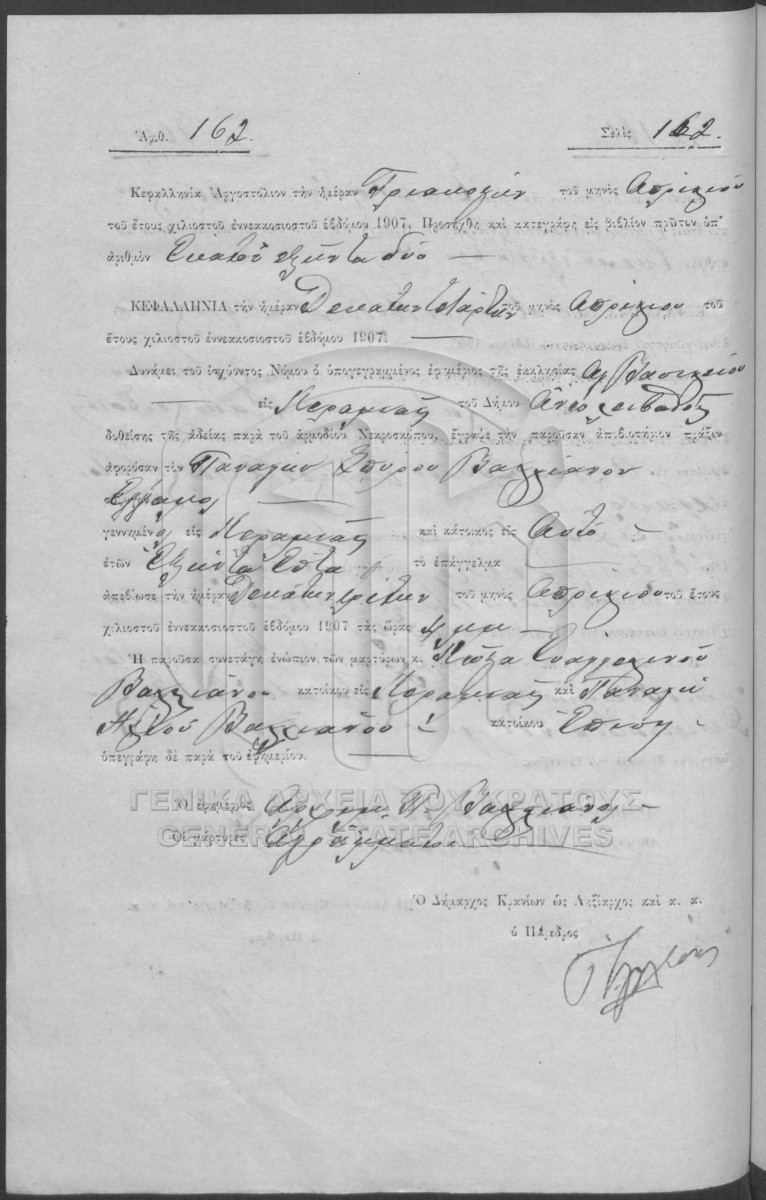 Ἀριθ. 162. Σελὶς 162.
Κεφαλληνία Ἀργοστόλιον τὴν ἡμέραν Τριακοστὴν τοῦ μηνὸς Ἀπριλίου
τοῦ ἔτους χιλιοστοῦ ἐννεακοσιοστοῦ ἑβδόμου 1907. Προσήχθη καὶ κατεγράφη εἰς βιβλίον πρῶτον ὑπ'
ἀριθμὸν Ἑκατὸν ἑξήντα δύο —
ΚΕΦΑΛΛΗΝΙΑ τὴν ἡμέραν Δεκάτην τετάρτην τοῦ μηνὸς Ἀπριλίου τοῦ
ἔτους χιλιοστοῦ ἐννεακοσιοστοῦ ἑβδόμου 1907. —
Δυνάμει τοῦ ἰσχύοντος Νόμου ὁ ὑπογεγραμμένος ἐφημέριος τῆς ἐκκλησίας Ἁγ Βασιλείου
— εἰς Κεραμιὰς τοῦ Δήμου Ἄνω Λειβαθοῦς
δοθείσης τῆς ἀδείας παρὰ τοῦ ἁρμοδίου Νεκροσκόπου, ἔγραψε τὴν παροῦσαν ἀποβιωτήριον πρᾶξιν
ἀφορῶσαν τὸν Παναγῆν Σπύρου Βαλλιάνον
—
γεννημένος εἰς Κεραμιὰς καὶ κάτοικος εἰς Αὐτὸ —
ἐτῶν Ἑξήντα Ἑπτὰ τὸ ἐπάγγελμα —
ἀπεβίωσε τὴν ἡμέραν Δεκάτην τρίτην τοῦ μηνὸς Ἀπριλίου τοῦ ἔτους
χιλιοστοῦ ἐννεακοσιοστοῦ ἑβδόμου 1907 τὰς ὥρας 4 μμ —
Ἡ παροῦσα συνετάγη ἐνώπιον τῶν μαρτύρων κ. Εὐαγγελινοῦ
Βαλλιάνου κατοίκου εἰς Κεραμιὰς καὶ Παναγῆ
Βαλλιάνου κατοίκου Ἐπίσης
ὑπεγράφη δὲ παρὰ τοῦ ἐφημερίου. —
ΓΕΝΙΚΑ ΑΡΧΕΙΑ ΤΟΥ ΚΡΑΤΟΥΣ
Ὁ ἐφημέριος Π. Βαλλιάνος —
GENERAL STATE ARCHIVES
Οἱ μάρτυρες Ἀγράμματοι
Ὁ Δήμαρχος Κρανίων ὡς Ληξίαρχος καὶ κ. κ.
ὁ Πάρεδρος